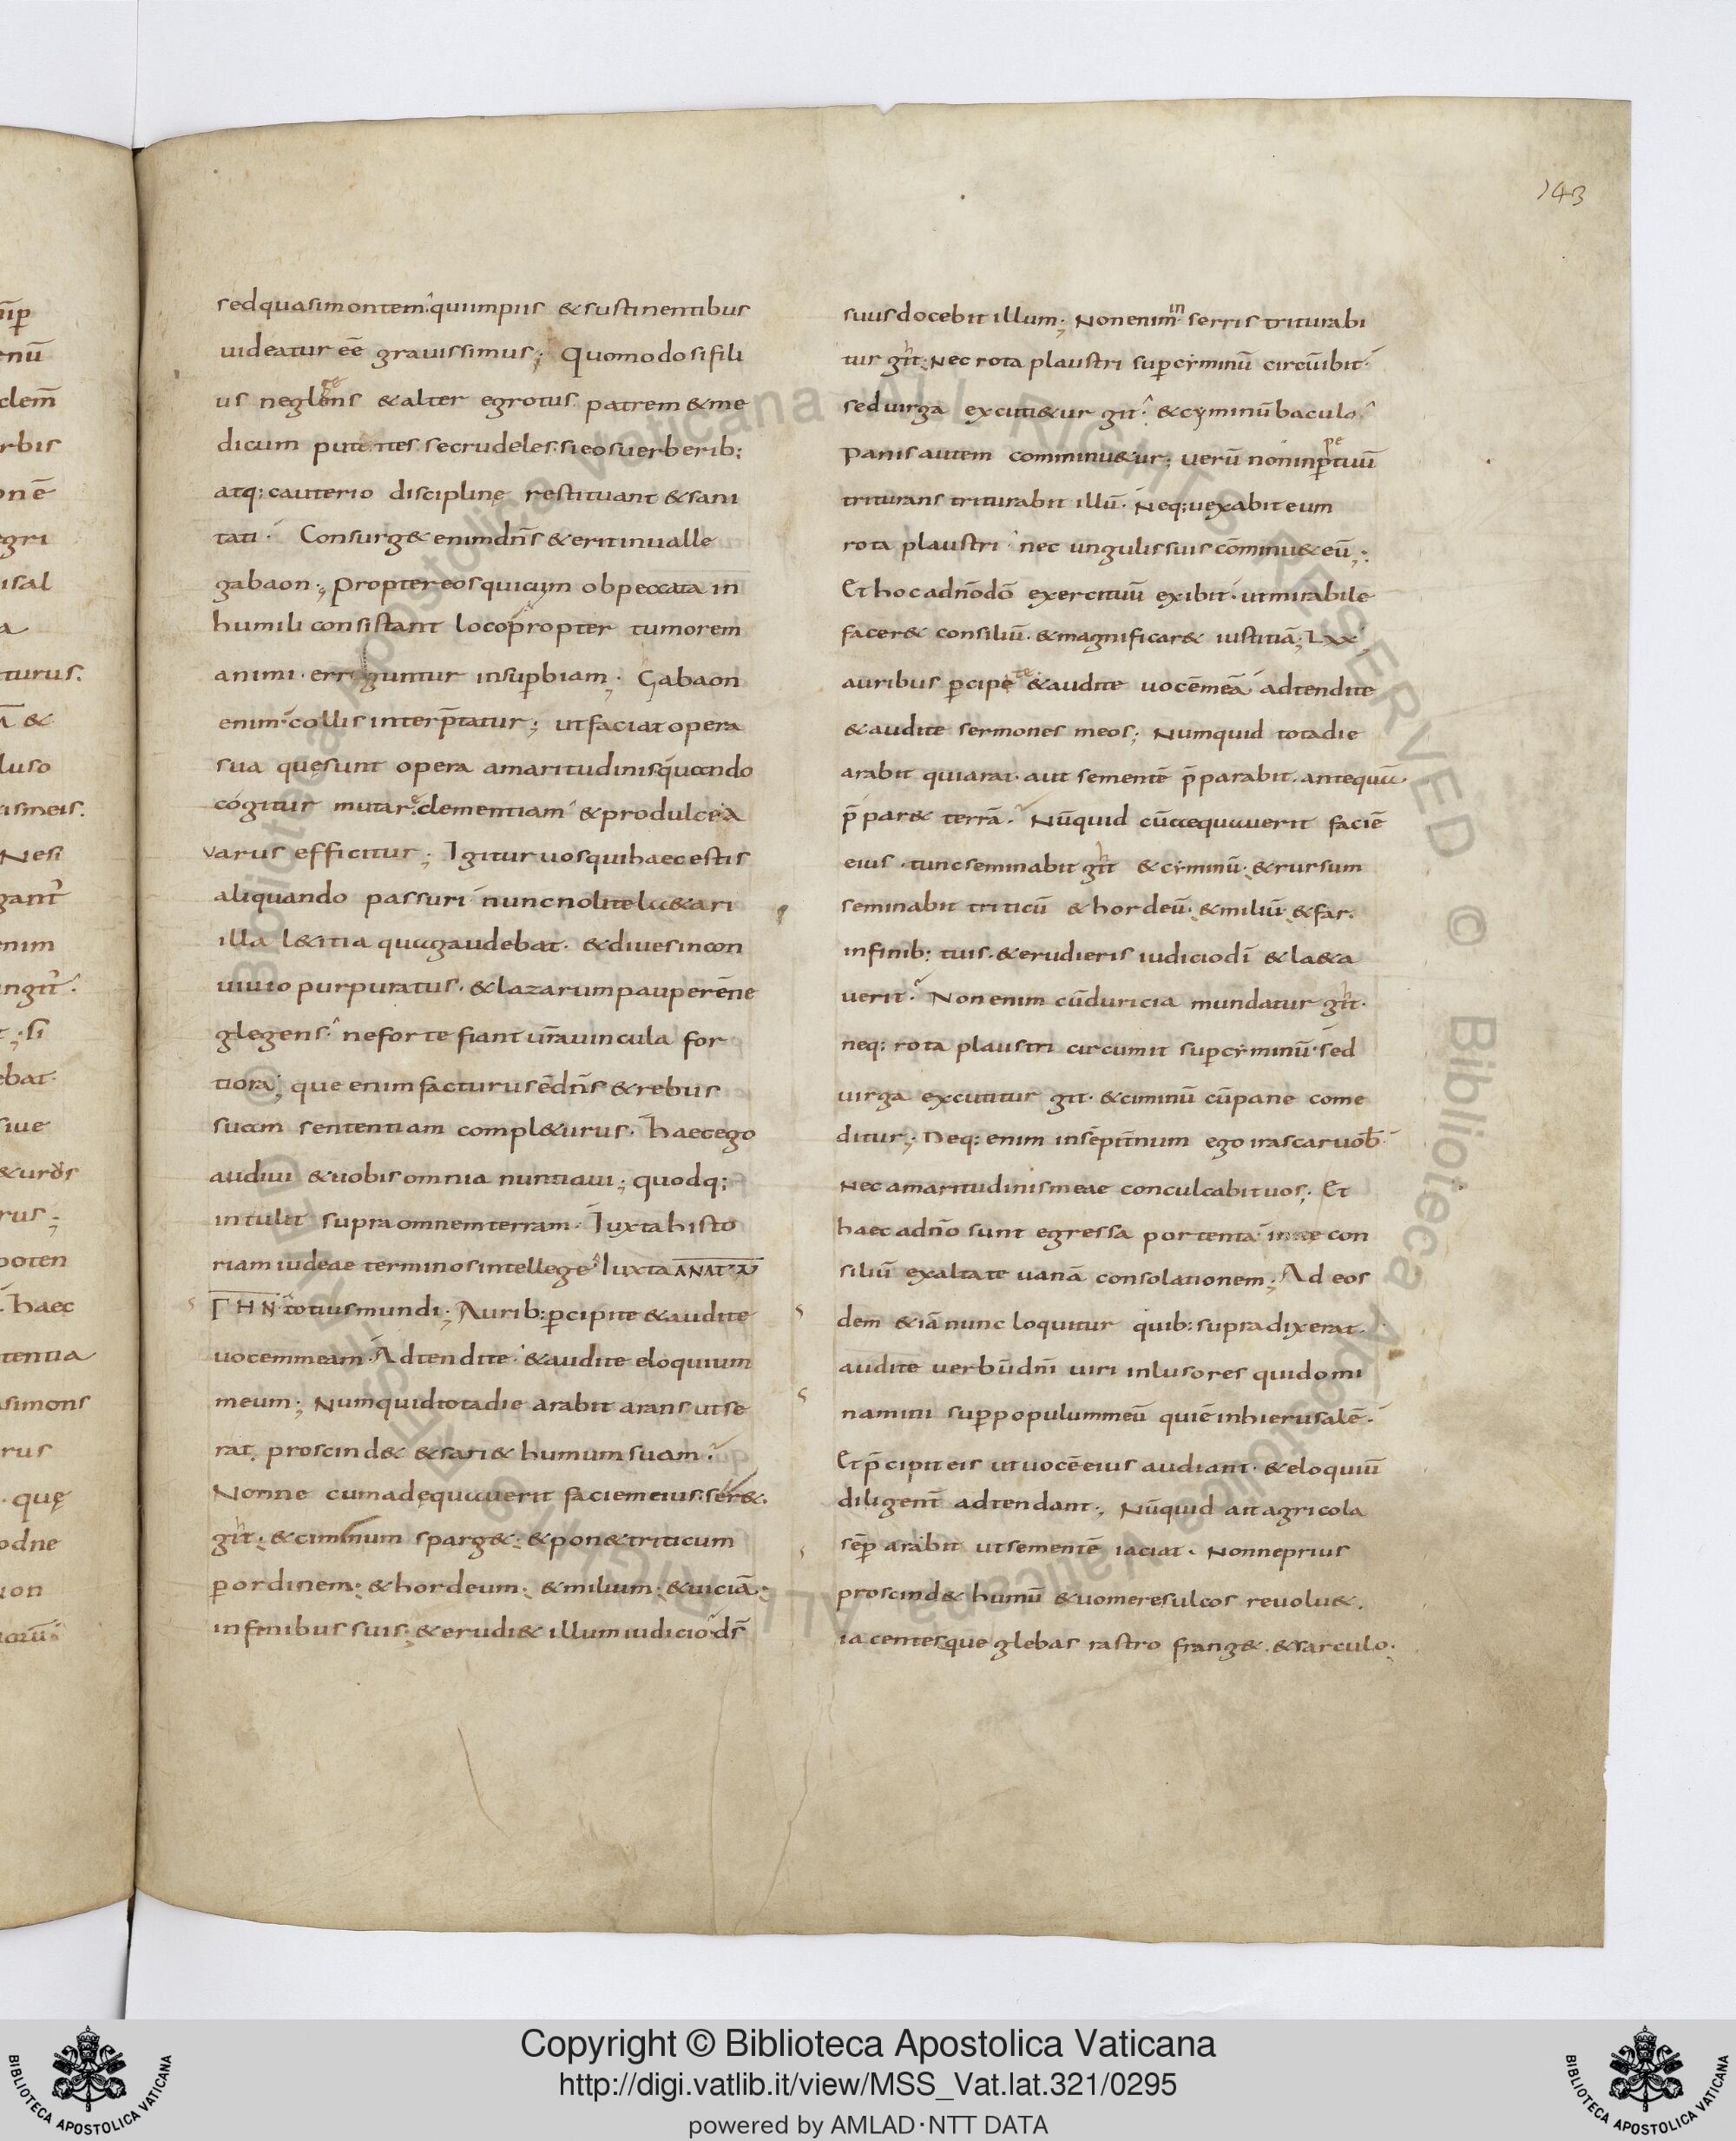 143
sed quasi montem qui impiis & sustinentibus
uideatur eē grauissimus; Quomodo si fili
us neglegens & alter egrotus patrem & me
dicum putent es se crudeles si eos uerberib;
atq; cauterio disciplinę restituant & sani
tati. Consurg& enim dn̄s & erit in ualle
gabaon; propter eos qui cum ob peccata in
humili consistant loco propter tumorem
animi. eriguntur in sup̄biam; Gabaon
enim collis interp̄tatur; ut faciat opera
sua quę sunt opera amaritudinis quando
cogitur mutare clementiam & pro dulci a
varus efficitur; Igitur uos qui haec estis
aliquando passuri nunc nolite l&ari
illa l&itia qua gaudebat. & diues in con
uiuio purpuratus. & lazarum pauperē ne
glegens. ne forte fiant ur̄a uincula for
tiora; que enim facturus ē dn̄s & rebus
suam sententiam compl&urus. haec ego
audiui & uobis omnia nuntiaui; quodq;
intulit supra omnem terram. Iuxta histo
riam iudeae terminos intellege Iuxta ΑΝΑΓ
ΓΗΝ totius mundi; Aurib; p̄cipite & audite
uocem meam. Adtendite. & audite eloquium
meum; Numquid tota die arabit arans ut se
rat. proscind& & sari& humum suam.
Nonne cum adęquauerit faciem eius. ser&.
gith. & ciminum sparg&. & pon& triticum
p̄ ordinem. & hordeum. & milium. & uiciā.
in finibus suis; & erudi& illum iudicio ds̄
suus docebit illum; Non enim in serris triturabi
tur gith. Nec rota plaustri sup̄ cyminū circūibit.
sed uirga excuti&ur git. & cyminū baculo
Panis autem comminu&ur; uerū non in p̄petuū
triturans triturabit illū. Neq; uexabit eum
rota plaustri nec ungulis suis cōminu& eū;
Et hoc a dn̄o dō exercituū exibit. ut mirabile
facer& consiliū. & magnificar& iustitiā; Lxx
auribus p̄cipite & audite uocē meā adtendite
& audite sermones meos; Numquid tota die
arabit qui arat. aut sementē p̄parabit. antequā
p̄par& terrā. Nūquid cū aequauerit faciē
eius. tunc seminabit gith & cyminū. & rursum
seminabit triticū & hordeū. & miliū & far.
in finib; tuis. & erudieris iudicio dī & l&a
uerit. Non enim cū duricia mundatur gith.
neq; rota plaustri circumit sup̄ cyminū sed
uirga excutitur git. & ciminū cū pane come
ditur; Neq; enim in sēpit̄num ego irascar uob̄
Nec amaritudinis meae conculcabit uos; Et
haec a dn̄o sunt egressa portenta con
siliū exaltate uanā consolationem; Ad eos
dem &iā nunc loquitur quib; supra dixerat.
audite uerbū dn̄i uiri inlusores qui domi
namini sup̄ populum meū qui ē in hierusalē.
Et p̄cipit eis ut uocē eius audiant. & eloquiū
diligent̄ adtendant; Nūquid ait agricola
sēp arabit ut sementē iaciat. Nonne prius
proscind& humū & uomere sulcos reuolu&.
iacentesque glebas rastro frang&. & sarculo.
Copyright © Biblioteca Apostolica Vaticana
http://digi.vatlib.it/view/MSS_Vat.lat.321/0295
powered by AMLAD·NTT DATA